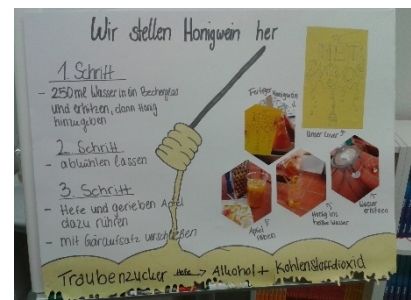 Wir stellen Honigwein her
1. Schritt
- 250ml Wasser in ein Becherglas
und erhitzen, dann Honig
hinzugeben
2. Schritt
- abkühlen lassen
3. Schritt
- Hefe und gerieben Apfel
dazu rühren
- mit Gäraufsatz verschließen
Fertiger Honigwein
Unser Cover
Apfel
reiben
Honig ins
heiße Wasser
Wasser
erhitzen
Traubenzucker Hefe → Alkohol + Kohlenstoffdioxid